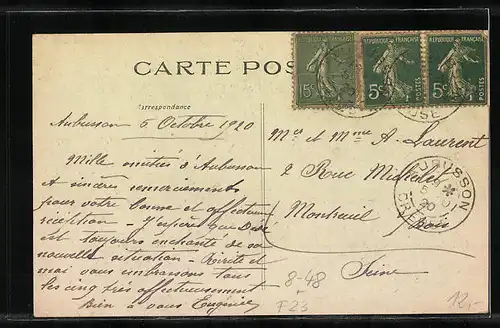 CARTE POS
Correspondance
15c
RÉPUBLIQUE FRANÇAISE
5c
POSTES
RÉPUBLIQUE FRANÇAISE
5c
POSTES
Aubusson 5 Octobre 1920
Mille amitiés d'Aubusson
et sincères remerciements
pour votre bonne et affectueuse
réception - J'espère que Dédé
est toujours enchanté de sa
nouvelle situation -
et
moi vous embrassons tous
les cinq très affectueusement
Bien à vous Eugénie
Mr et Mme A. Laurent
2 Rue Michelet
Montreuil s/ Bois
Seine
AUBUSSON
CREUSE
8-48
F23
12,-